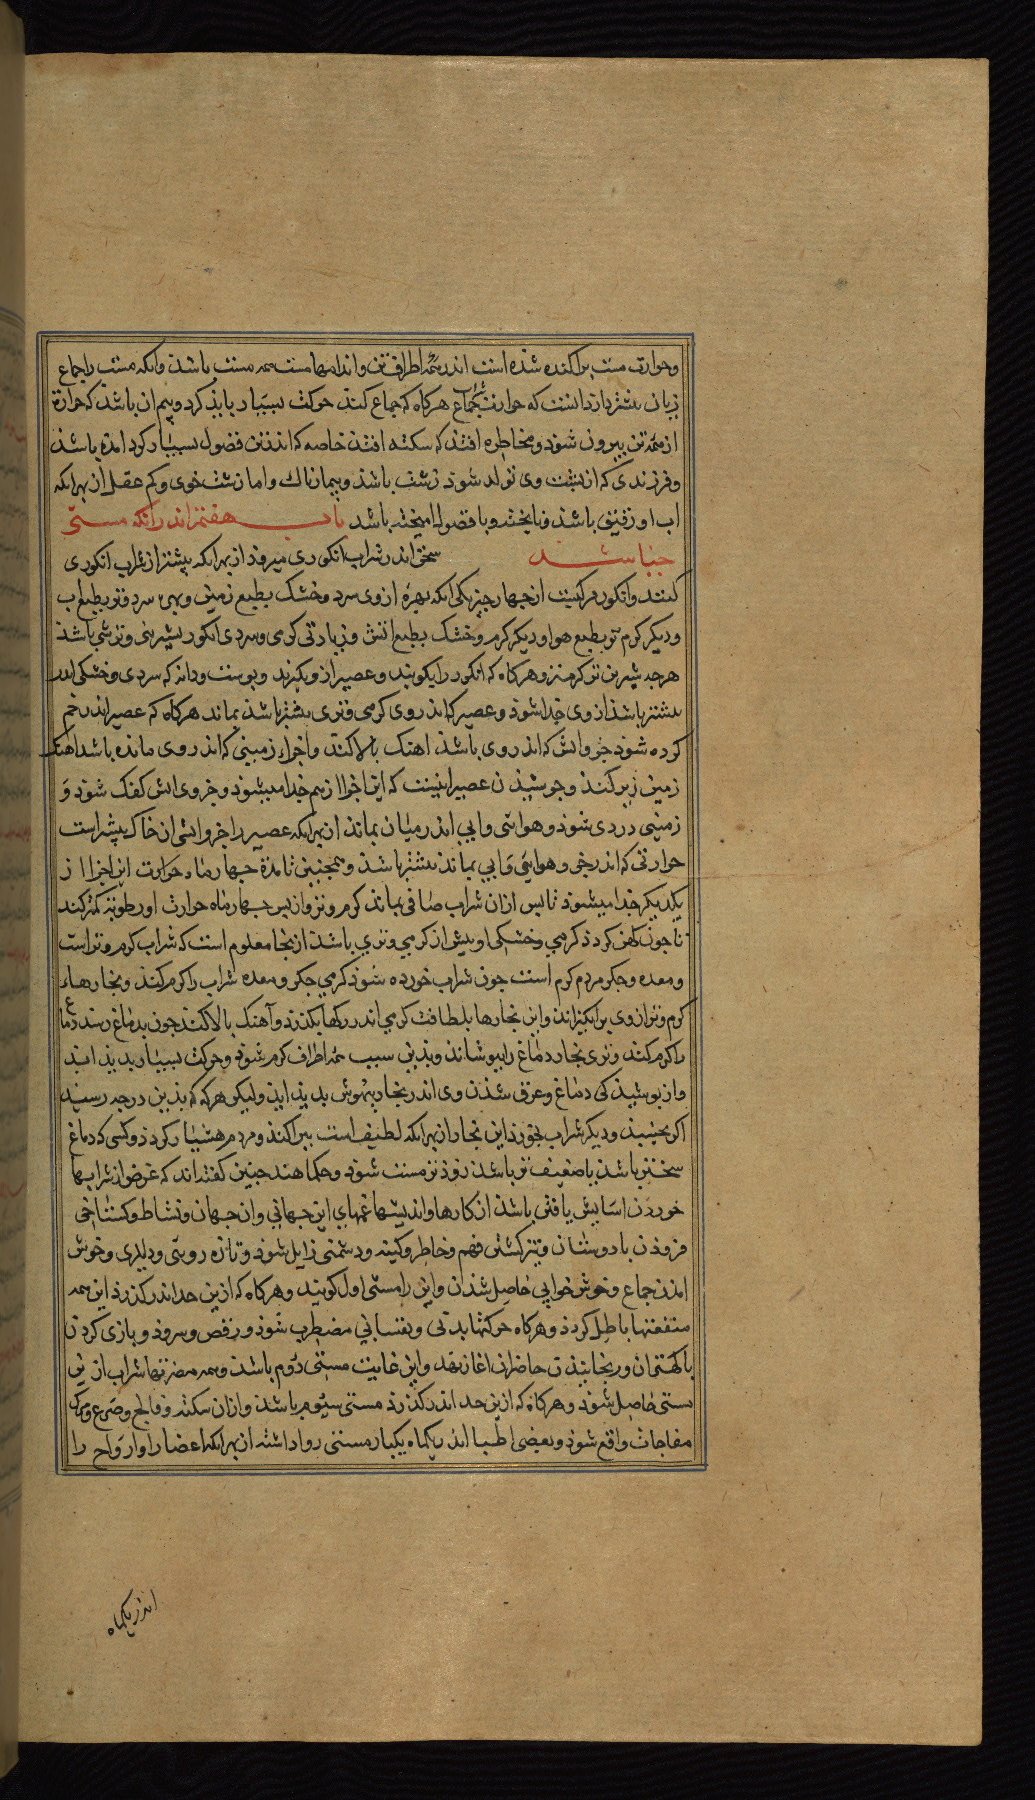 وحرارت مست پراکنده شده است اندر همه اطراف تن و اندامها مست همه سست باشد وانکه مست را جماع
زیان بیشتر دارد انست که حرارت جماع هرکاه که جماع کند حرکت بسیار باید کرد و بیم ان باشد که حرارة
از همه تن بیرون شود و مخاطره افتد که سکته افتد خاصه که اندر تن فضول بسیار کرد امده باشد
و فرزندی که از پشت وی تولد شود زشت باشد و بیمارناک واما زشت خوی و کم عقل از بهر انکه
اب او رقیق باشد و ناپخته و با فضولها امیخته باشد باب هفتم اندر انکه مستی
جبا شد سخن اندر شراب انکوری میرود از بهر انکه بیشتر از شراب انکوری
کنند وانکور مرکبست از جهار جیز یکی انکه بهرهٔ از وی سرد و خشک بطبع زمین و بهره سرد و تر بطبع اب
و دیکر کرم و تر بطبع هوا و دیکر کرم و خشک بطبع اتش و زیادتی کرمی و سردی انکور بشیرینی و ترشی باشد
هرجه شیرین تر کرمتر و هرکاه که انکور را بکوبند و عصیر ازو بکیرند و پوست و دانه که سردی و خشکی اندر
بیشتر باشد از وی جدا شود و عصیر که اندر وی کرمی و تری بیشتر باشد بماند هرکاه که عصیر اندر خم
کرده شود جزو اتش که اندر وی باشد اهنک بالا کند واجزاء زمینی که اندر وی مانده باشد اهنک
زمین زیر کند و جوشیدن عصیر اینست که این اجزا از هم جدا میشود و جزوی اتش کفک شود و
زمینی دردی شود و هوایی وابی اندر میان بماند از بهر انکه عصیر را جزو اتشی ان خاک بیشتر است
حرارتی که اندر جزو هوایی و ابی بماند بیشتر باشد و همجنین تا مدة جهار ماه حرارت این اجزا از
یکدیکر جدا میشود تا بس ازان شراب صافی بماند کرم و تر و از بس جهار ماه حرارت او رطوبت کمتر کند
تا جون کهن کردد کرمی و خشکی او بیش از کرمی و تری باشد ازینجا معلوم است که شراب کرم و تر است
و معده و جکر مردم کرم است جون شراب خورده شود کرمی جکر و معده شراب را کرم کند و بخارهاء
کرم و تر از وی برانکیزاند و این بخارها بلطافت کرمی اندر رکها بکذرد و آهنک بالا کند جون بدماغ رسد دماغ
را کرم کند و تری بخار دماغ را بپوشاند و بدین سبب همه اطراف کرم شود و حرکت بسیار پدید اید
و از پوشیدکی دماغ و غرق شدن وی اندر بخار بیهوشی پدید اید ولیکن هرکه که بدین درجه رسید
اکر بخسبد و دیکر شراب نخورد این بخار از بهر انکه لطیف است بپراکند و مردم هشیار کردد و کسی که دماغ
سخت تر باشد یا ضعیف تر باشد زود تر مست شود و حکما هند جنین کفته اند که غرض از شرابها
خوردن اسایش یافتن باشد از کارها و اندیشها غمهای این جهانی وان جهان و نشاط و کستاخی
فزودن با دوستان و تیز کشتن فهم و خاطر و کینه و دشمنی زایل شود و تازه رویی و دلیری و خوش
امدن جماع و خوش خوابی حاصل شدن و این را مستی اول کویند و هرکاه که ازین حد اندر کذرد این همه
منفعتها باطل کردد و هرکاه حرکتها بدنی و نفسانی مضطرب شود و رقص و سرود و بازی کردن
با کهتران و رنجانیدن حاضران اغاز نهد و این غایت مستی دوم باشد و همه مضرتها شراب ازین
مستی حاصل شود و هرکاه که ازین حد اندر کذرد مستی سیوم باشد و ازان سکته و فالج و صرع و مرک
مفاجات واقع شود و بعضی اطبا اندر یکماه یکبار مستی روا داشته از بهر انکه اعضا را و ارواح را
اندر یکماه